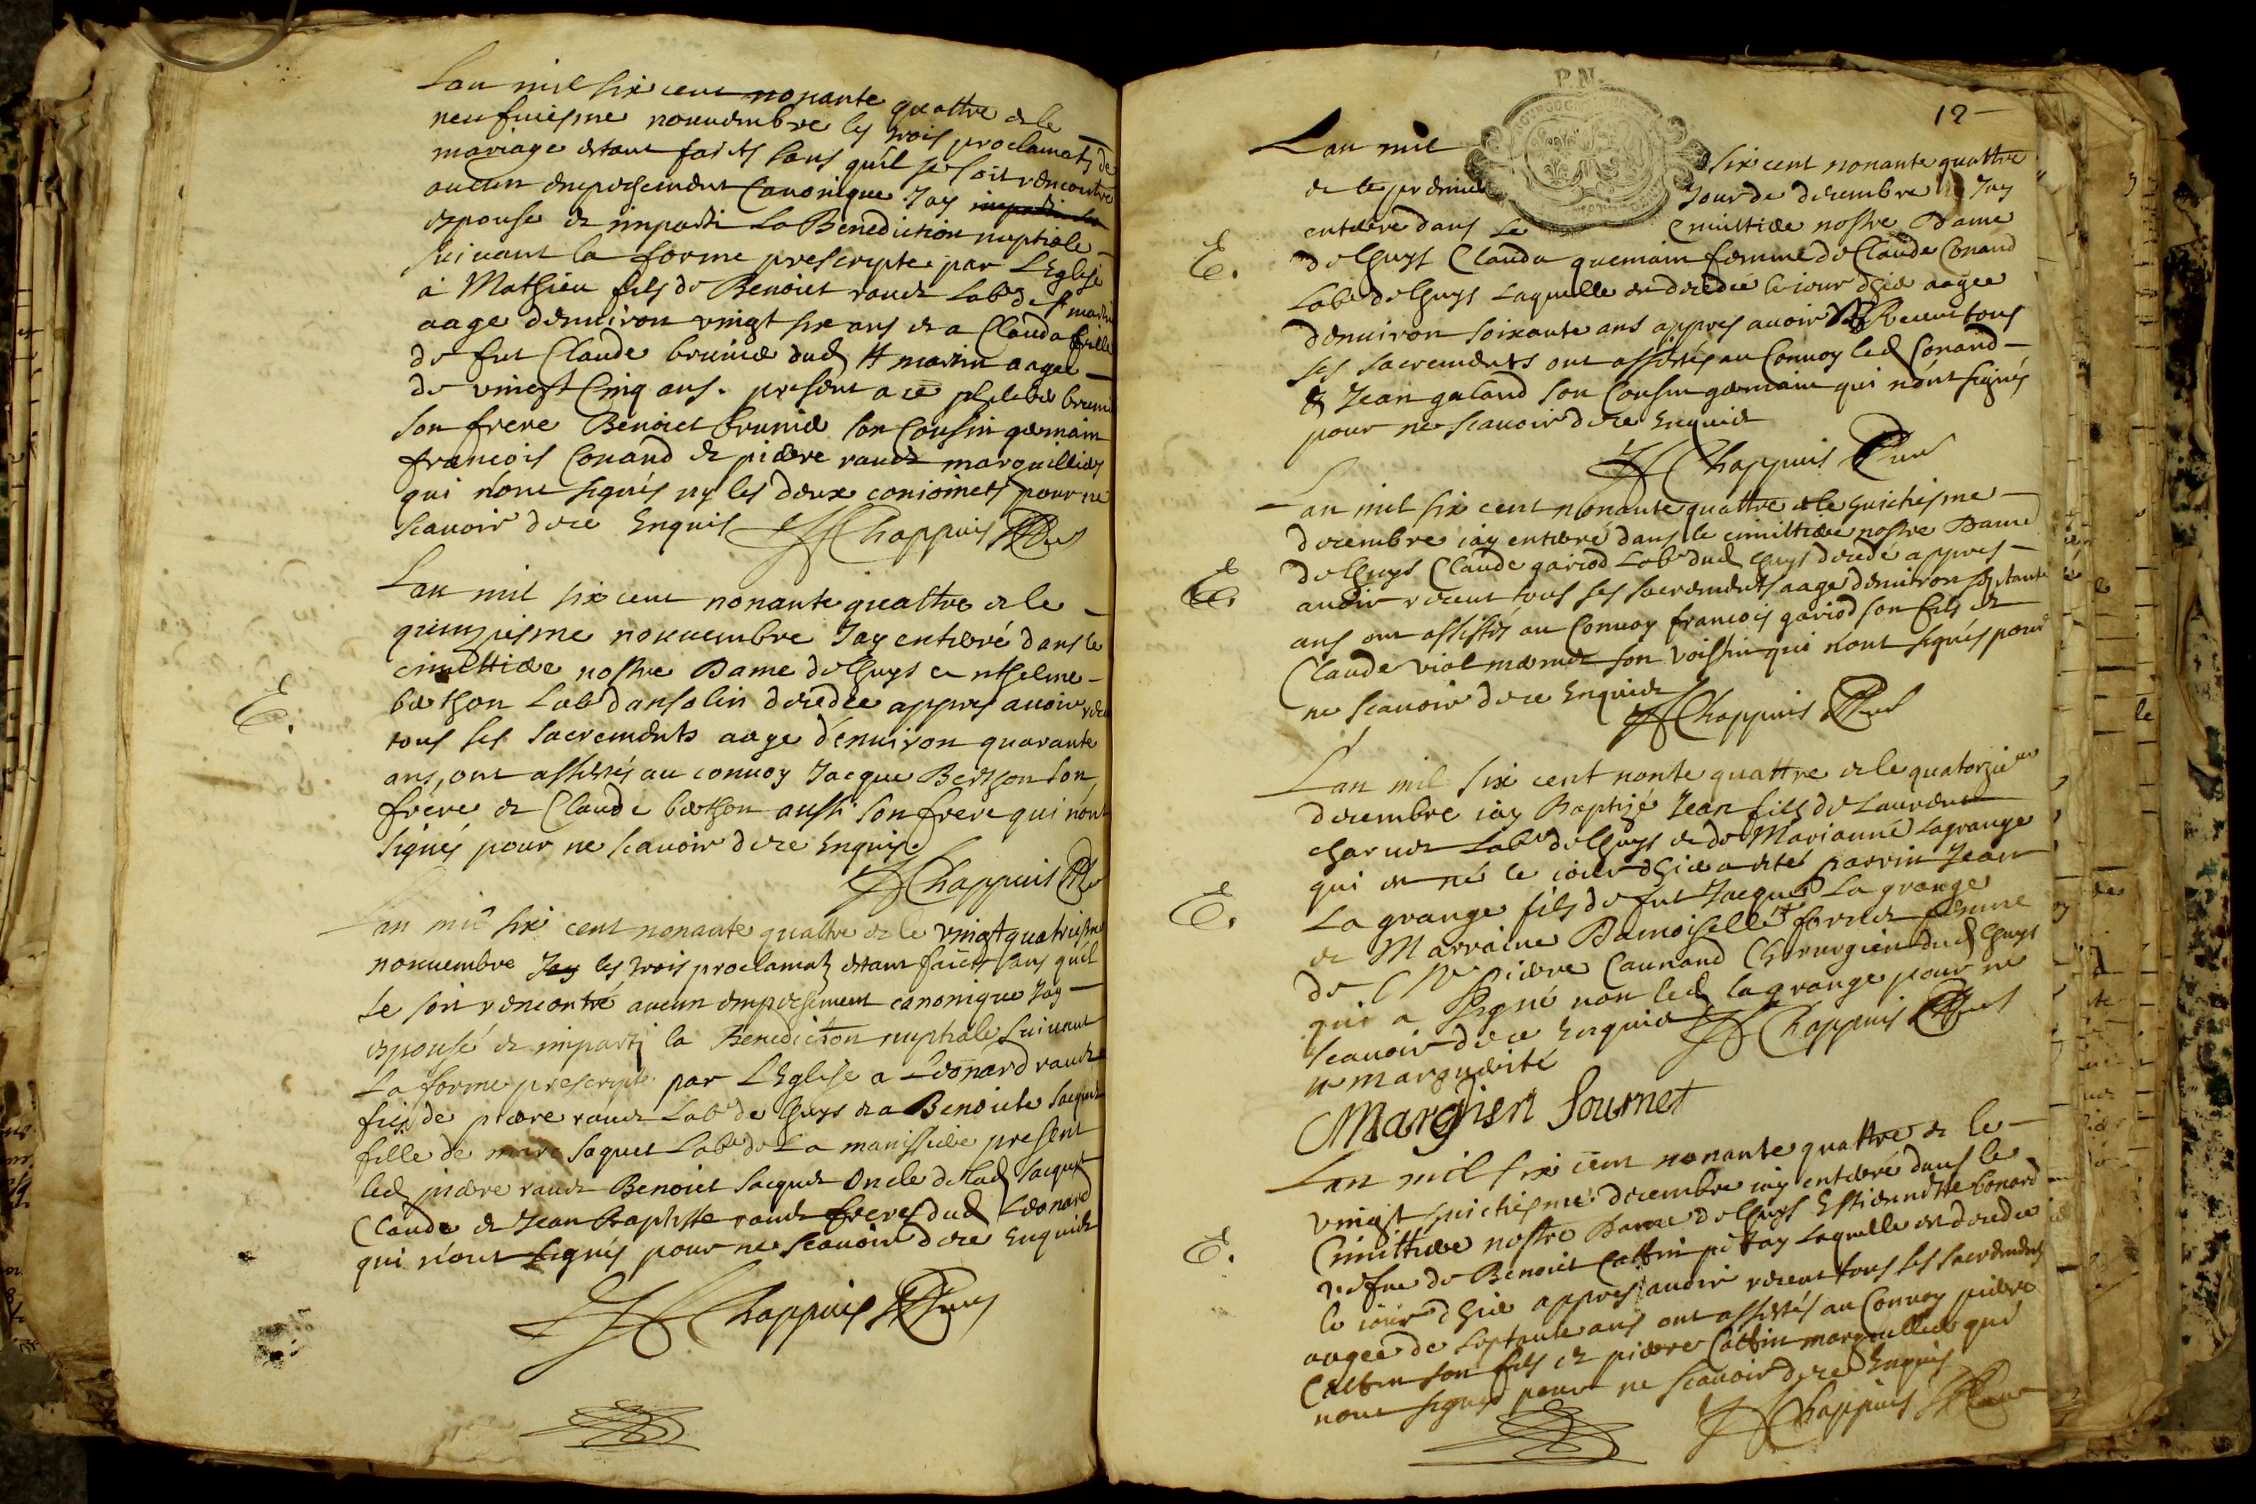 Lan mil six cent nonante quattre & le
neufuiesme nouuembre les trois proclamats de
mariage estant faicts sans quil se soit rencontré
aucun empeschement Canonique Jay
espouse et imparti La Benediction nuptiale
suiuant la forme prescripte par LEglise
a Mathieu fils de Benoict roude Labr de st martin
aage denuiron vingt six ans et a Clauda fille
de fut Claude brunier dud st martin aagee
de vingt Cinq ans. present a ce philebe brunier
son frere Benoict brunier son Cousin germain
francois Conand et pierre roude marguillier
qui nont signés ny les deux conioincts pour ne
scauoir de ce Enquis Chappuis
Lan mil six cent nonante quattre et le
quinziesme nouuembre Jay enterré dans le
cimittiere nostre Dame de Cuys Anthelme
berthon Labr dansolin decedee appres auoir receu
tous ses sacrements aage d'enuiron quarante
ans, ont assistés au conuoy Jacque Berthon son
frere et Claude berthon aussi son frere qui nont
signés pour ne scauoir de ce Enquis.
Chappuis
Lan mil six cent nonante quattre et le vingt quatriesme
nouuembre Jay les trois proclamats estant faicts sans quil
se soit rencontré aucun empeschement canonique Jay
espousé et imparti la Benediction nuptiale suiuant
La forme prescripte par LEglise a Leonard roude
fils de pierre roude Labr de Cuys et a Benoicte Jacquet
fille de marc Jaquet Labr de La manissiere present
led pierre roude Benoict Jacquet Oncle de lad Jacquet
Claude et Jean Baptiste roude freres dud Leonard
qui nont signés pour ne scauoir de ce Enquis
Chappuis
P.N.
12
Lan mil six cent nonante quattre
et le premier Jour de decembre Jay
enterré dans Le Cimittiere nostre Dame
de Cuys Clauda guemain femme de Claude Conand
Labr de Cuys Laquelle est decedee le iour d'hier aagee
E.
denuiron soixante ans appres auoir Receut tous
ses sacrements ont assistés au Conuoy led Conand
& Jean galand son Cousin germain qui nont signés
pour ne scauoir de ce Enquis
Chappuis
Lan mil six cent nonante quattre et le huictiesme
decembre iay enterré dans le cimittiere nostre Dame
de Cuys Claude gariod Labr dud Cuys decedé appres
E.
auoir receut tous ses sacrements aage denuiron septante
ans ont assistés au Conuoy francois gariod son fils et
Claude viol mermet son voissin qui nont signés pour
ne scauoir de ce Enquis
Chappuis
Lan mil six cent nonte quattre et le quatorzieme
decembre iay Baptizé Jean fils de Laurent
charuet Labr de Cuys et de Marianne Lagrange
qui est né le iour d'hier a esté parrin Jean
E.
La grange fils de fut Jacques La grange
et Marraine Damoiselle + fornet femme
de Mre pierre Caunand Chirurgien dud Cuys
qui a signé non led lagrange pour ne
scauoir de ce Enquis Chappuis
+ marguerite
Margherit fournet
Lan mil six cent nonante quattre et le
vingt huictiesme decembre iay enterré dans le
Cimittiere nostre Dame de Cuys Estiennette bonard
E.
vefue de Benoict Cattin Laquelle est decedee
le iour d'hier appres auoir receut tous ses sacrements
aagee de septante ans ont assistés au Conuoy pierre
Cattin son fils et pierre Cattin marguillier qui
nont signes pour ne scauoir de ce Enquis
Chappuis